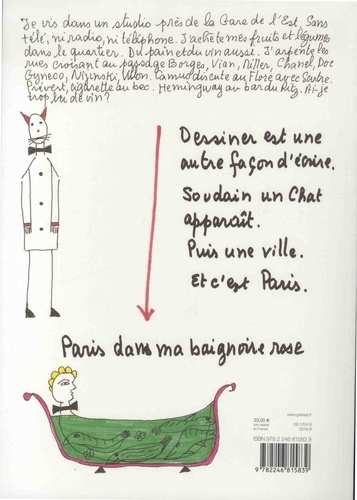 Je vis dans un studio près de la Gare de l'Est. Sans
télé, ni radio, ni téléphone. J'achète mes fruits et légumes
dans le quartier. Du pain et du vin aussi. J'arpente les
rues croisant au passage Borges, Vian, Miller, Chanel, Doc
Gyneco, Nijinski, Villon. Camus discute au Flore avec Sartre.
Prévert, cigarette au bec. Hemingway au bar du Ritz. Ai-je
trop bu de vin ?
Dessiner est une
autre façon d'écrire.
Soudain un Chat
apparaît.
Puis une ville.
Et c'est Paris.
Paris dans ma baignoire rose
www.grasset.fr
ISBN 978 2 246 81583 9
9 782246 815839